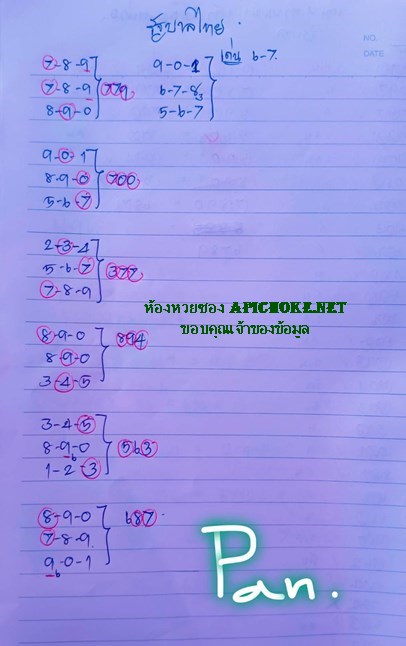 รัฐบาลไทย.
NO.
DATE
7-8-9 9-0-1 เด่น 6-7.
7-8-9 779 6-7-8
8-9-0 5-6-7
9-0-1
8-9-0 700
5-6-7
2-3-4
5-6-7 377
7-8-9
ห้องหวยซอง APICHOKE.NET
ขอบคุณเจ้าของข้อมูล
8-9-0
8-9-0 894
3-4-5
3-4-5
8-9-0 563
6
1-2-3
8-9-0 687
7-8-9
9-0-1
6
Pan.